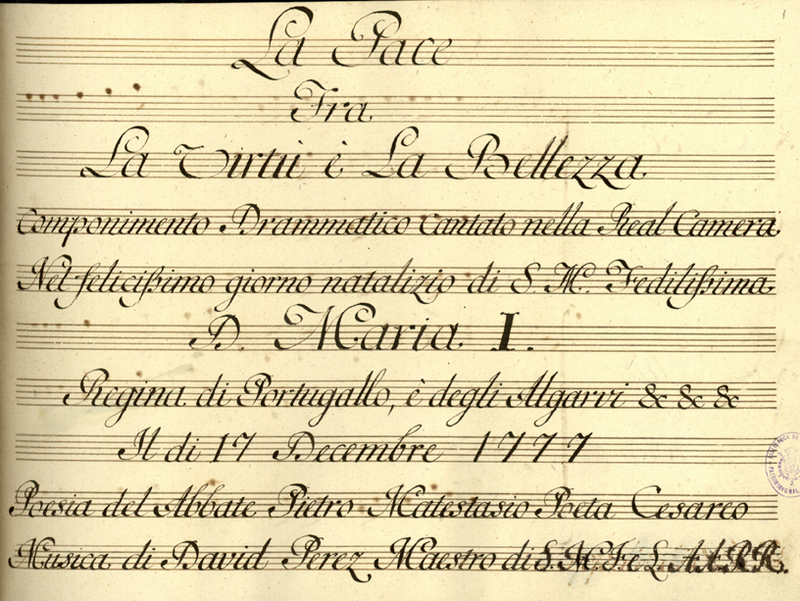 La Pace
Fra
La Virtù è La Bellezza
Componimento Drammatico Cantato nella Real Camera
Nel felicissimo giorno natalizio di S. M. Fedilissima
D. Maria I.
Regina di Portugallo, è degli Algarvi & & &
Il di 17 Decembre 1777
Poesia del Abbate Pietro Matestasio Poeta Cesareo
Musica di David Perez Maestro di S. M. F. e L. A. A. R. R.